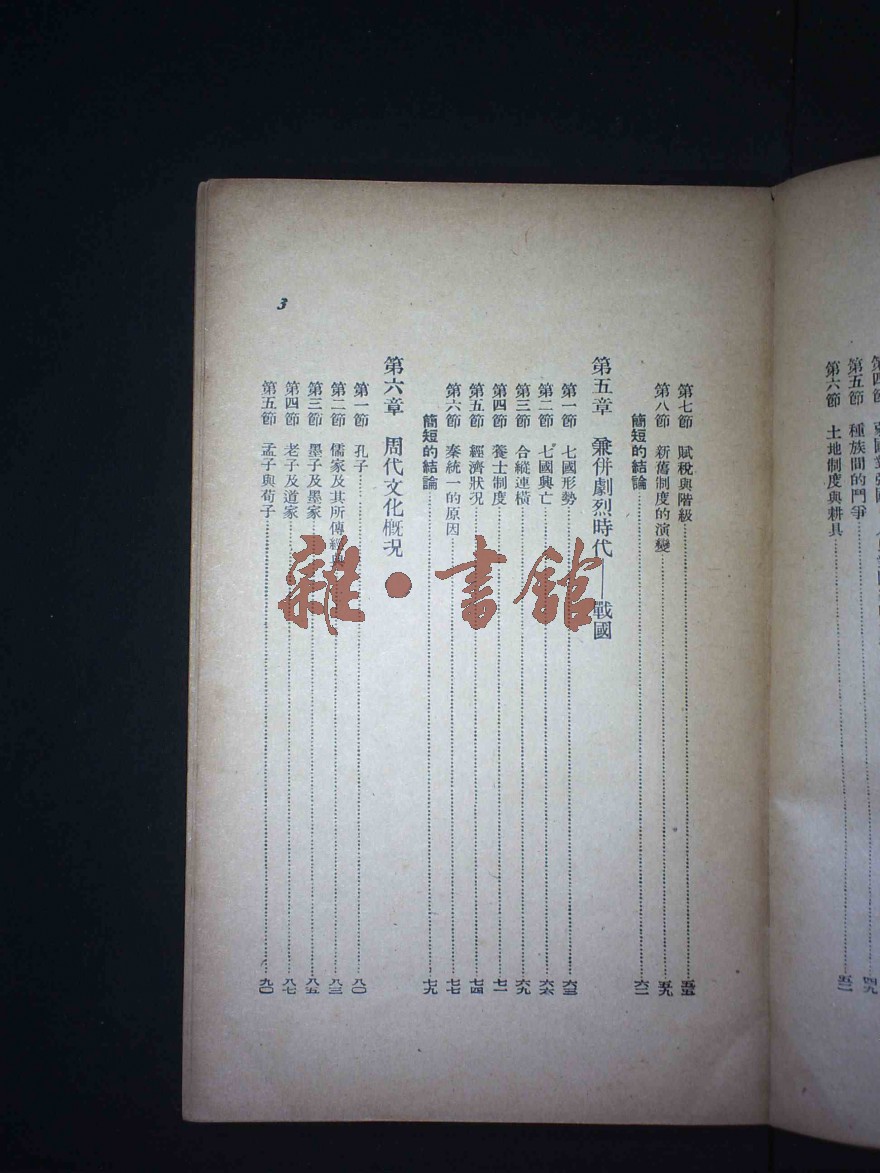 第四節
第五節 種族間的鬥爭……四九
第六節 土地制度與耕具……五二
第七節 賦稅與階級……五五
第八節 新舊制度的演變……五九
簡短的結論……六二
第五章 兼併劇烈時代——戰國
第一節 七國形勢……六三
第二節 七國興亡……六六
第三節 合縱連橫……六九
第四節 養士制度……七一
第五節 經濟狀況……七四
第六節 秦統一的原因……七七
簡短的結論……七九
第六章 周代文化概況
第一節 孔子……八〇
第二節 儒家及其所傳經典……八三
第三節 墨子及墨家……八五
第四節 老子及道家……八七
第五節 孟子與荀子……九〇
3
雜·書館